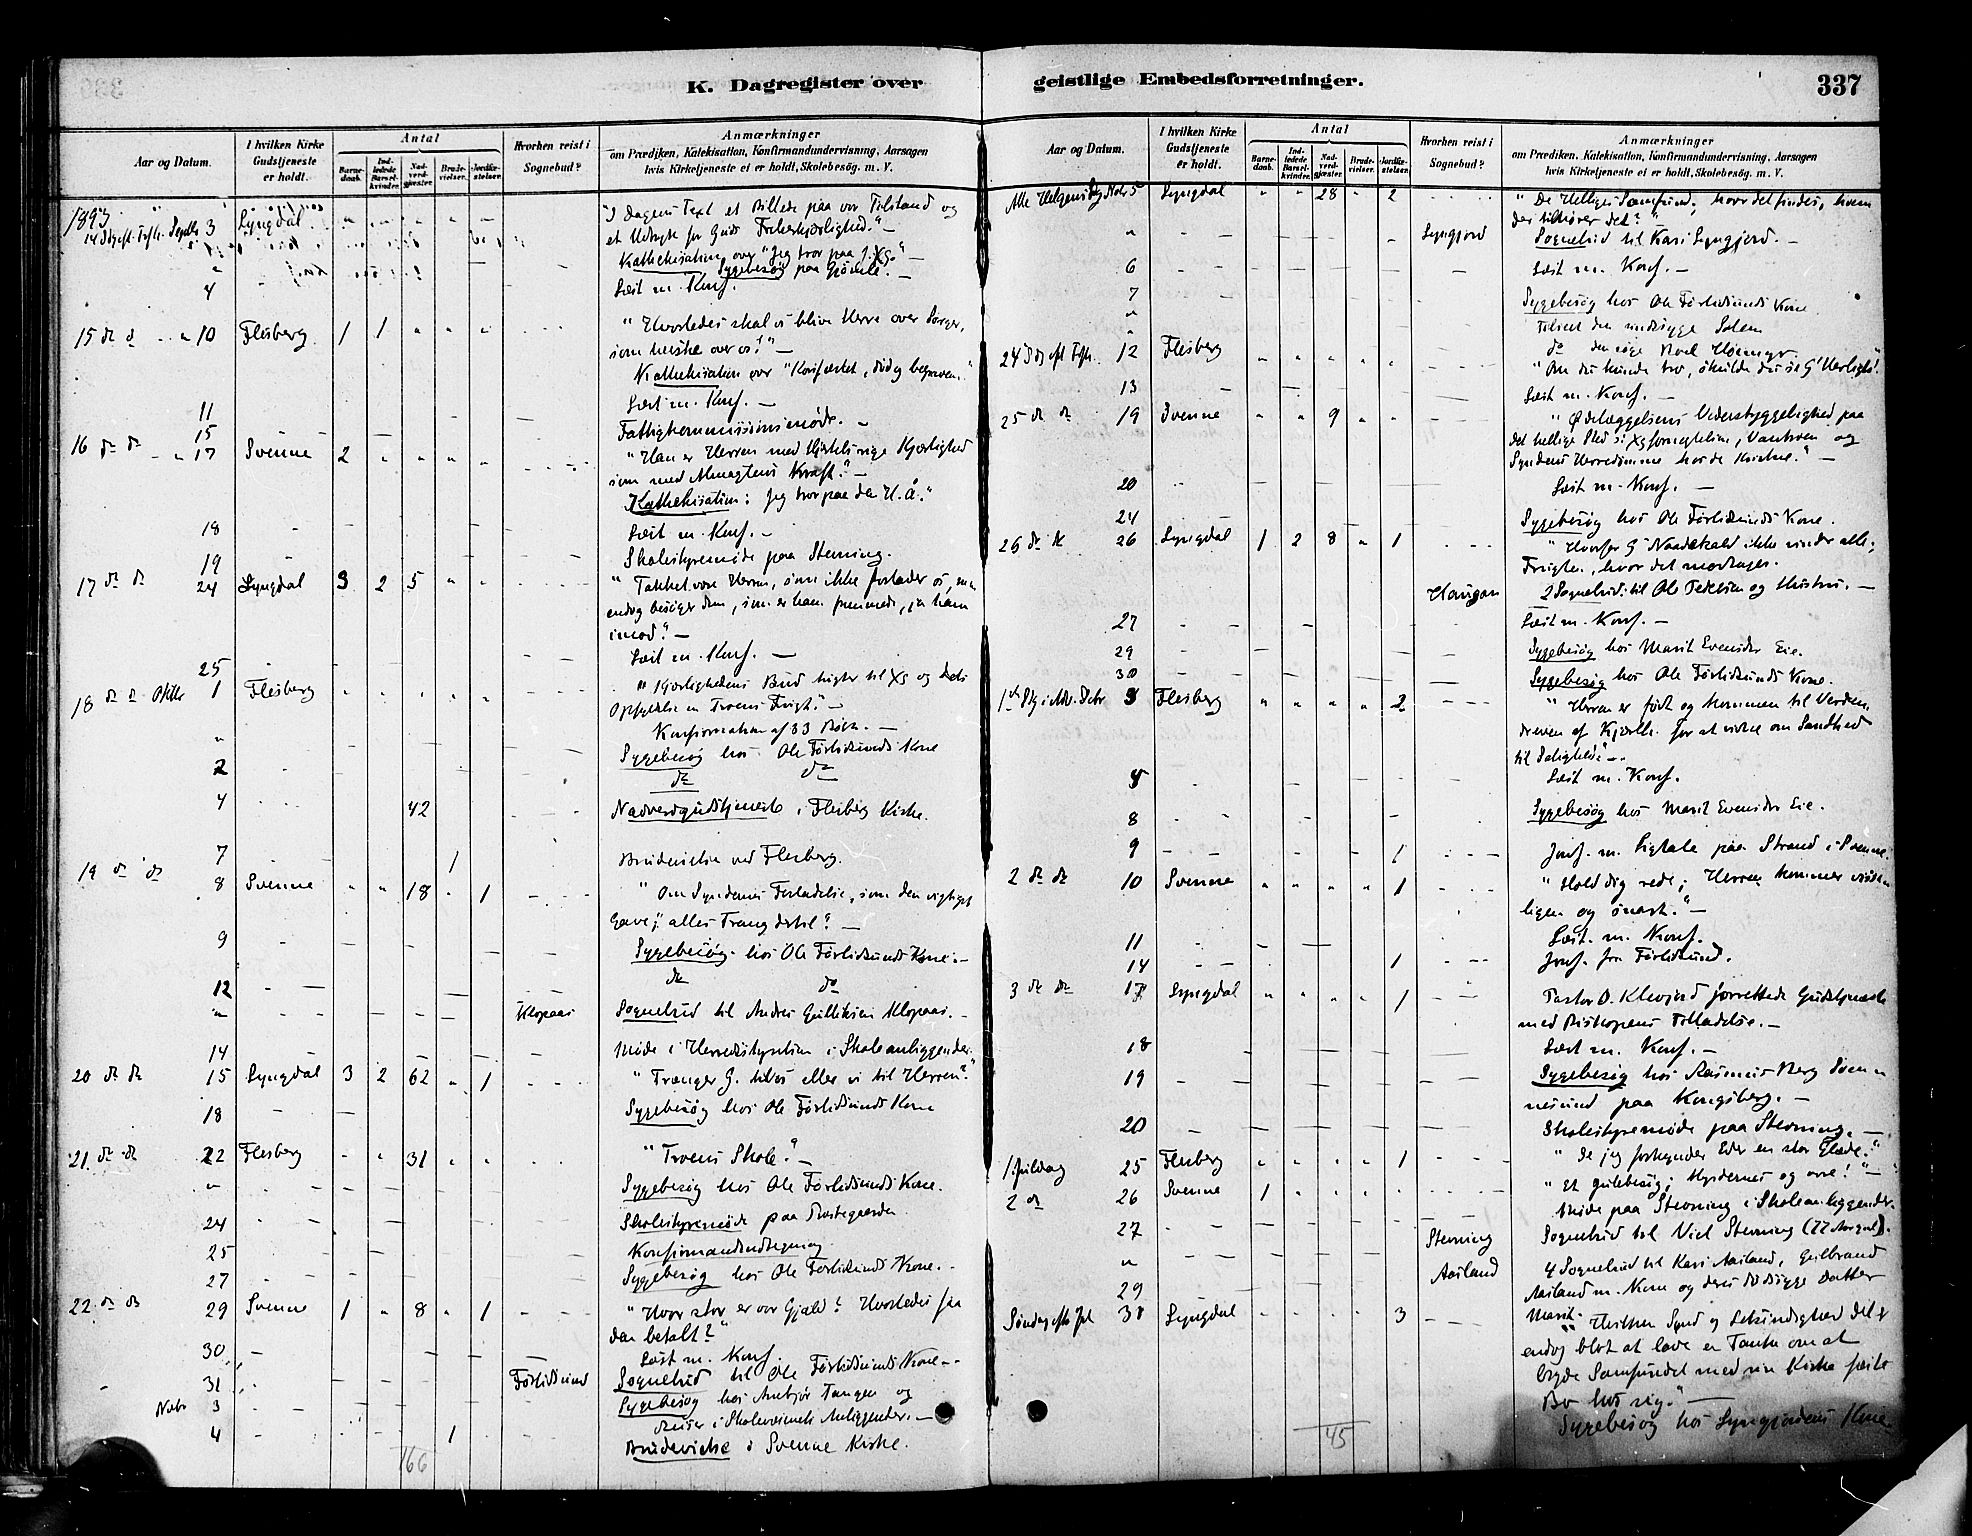 K. Dagregister over
Aar og Datum.
I hvilken Kirke Gudstjeneste er holdt.
Antal
Barnedaab.
Indledede Barselkvinder.
Nadverdgjæster.
Brudevielser.
Jordfæstelser.
Hvorhen reist i Sognebud?
Anmærkninger
om Prædiken, Katekisation, Konfirmandundervisning, Aarsagen
hvis Kirketjeneste ei er holdt, Skolebesøg m. V.
1893
14 Septbr 3 Lyngdal "I Dagens Text et Billede paa vor Tilstand og
et Udtryk for Guds Frelserkjærlighed." —
Kathekisation over "Jeg tror paa J. Xs." —
Sygebesøg paa
4 Læst m. Konf.
15 d d 10 Flesberg 1 1 "Hvorledes skal vi blive Herre over Sorger,
som herske over os?" —
Kathekisation over "Korsfæstet, død og begraven."
11 Læst m. Konf. —
15 Fattigkommissionsmøde. —
16 d d 17 Svenne 2 "Han er Herren med Hjertelig Kjærlighed
som med Almagtens Kraft." —
Kathekisation: Jeg tror paa den H. Å."
18 Læst m. Konf. —
19 Skolestyremøde paa Stevning.
17 d d 24 Lyngdal 3 2 5 "Takket være Herren, som ikke forlader os, men
endog besøger dem, som er ham fremmede, ja ham
imod." —
25 Læst m. Konf. —
18 d d Oktbr 1 Flesberg "Kjærlighedens Bud sigter til Xs og dets
Opfyldelse en Troens Frugt." —
Konfirmation af 33 Børn. —
" Sygebesøg hos Ole Førlidsunds Kone
2 do do
4 42 Nadverdgudstjeneste i Flesberg Kirke.
7 1 Brudevielse ved Flesberg.
19 d d 8 Svenne 18 1 "Om Syndernes Forladelse, som den vigtigste
Gave; alles Trang dertil." —
9 Sygebesøg hos Ole Førlidsunds Kone. —
12 do do
" Klopaas Sognebud til Andres Gulliksen Klopaas. —
14 Møde i Herredsstyrelsen i Skoleanliggender.
20 d d 15 Lyngdal 3 2 62 1 "Trænger G. til os eller vi til Herren?"
18 Sygebesøg hos Ole Førlidsunds Kone
21 d d 22 Flesberg 31 "Troens Skole." —
" Sygebesøg hos Ole Førlidsunds Kone.
24 Skolestyremøde paa Prestegaarden
25 Konfirmandindtegning
27 Sygebesøg hos Ole Førlidsunds Kone. -
22 d d 29 Svenne 1 8 1 "Hvor stor er vor Gjæld? Hvorledes faa
den betalt?"
30 Læst m. Konf.
31 Førlidsund Sognebud til Ole Førlidsunds Kone. -
Novbr 3 Sygebesøg hos Anbjør Tangen og
Reiser i Skolevæsenets Anliggender. —
4 1 Brudevielse i Svenne Kirke.
166
geistlige Embedsforretninger.
337
Aar og Datum.
I hvilken Kirke Gudstjeneste er holdt.
Antal
Barnedaab.
Indledede Barselkvinder.
Nadverdgjæster.
Brudevielser.
Jordfæstelser.
Hvorhen reist i Sognebud?
Anmærkninger
om Prædiken, Katekisation, Konfirmandundervisning, Aarsagen
hvis Kirketjeneste ei er holdt, Skolebesøg m. V.
Alle Helgensdag Novbr 5 Lyngdal 28 2 "De Helliges Samfund, hvor det findes, hvem
der tilhører det?"
" Lyngjord Sognebud til Kari Lyngjord. —
6 Læst m. Konf. —
7 Sygebesøg hos Ole Førlidsunds Kone
" Tilseet den sindssyge
" do den syge
24 12 Flesberg "Om du kunde tro, skulde du se G's Herlighed."
13 Læst m. Konf. —
25 d d 19 Svenne 9 "Ødelæggelsens Vederstyggelighed paa
det hellige Sted i Xs fornegtelse, Vantroen og
Syndens Herredømme hos de Kristne." —
20 Læst m. Konf. —
24 Sygebesøg hos Ole Førlidsunds Kone.
26 d d 26 Lyngdal 1 2 8 1 "Hvorfor G's Naadekald ikke vinder alle;
Frugten, hvor det modtages.
Haugan 2 Sognebud: til Ole Pedersen og Hustru. —
27 Læst m. Konf. —
29 Sygebesøg hos Marit Evensdr Eie.
30 Sygebesøg hos Ole Førlidsunds Kone.
1 Decbr 3 Flesberg 2 "Herren er født og kommen til Verden
dreven af Kjærligh. for at vidne om Sandhed
til Salighed." —
4 Læst m. Konf.
8 Sygebesøg hos Marit Evensdr Eie.
9 1 Jordf. m. Ligtale paa Strand i Svenne.
2 d d 10 Svenne 1 "Hold dig rede; Herren kommer visse-
ligen og snart." —
11 Læst m. Konf.
14 1 Jordf. fra Førlidsund.
3 d d 17 Lyngdal 1 Pastor O. Klevjord forrettede Gudstjeneste
med Biskopens Tilladelse. —
18 Læst m. Konf. —
19 Sygebesøg hos Rasmus Berg Sven-
nesund paa Kongsberg. —
20 Skolestyremøde paa Stevning. —
1. Juledag 25 Flesberg 1 "Se jeg forkynder Eder en stor Glæde." —
2 d 26 Svenne 1 "Et Julebesøg; Hyrdernes og vore!" —
27 Møde paa Stevning i Skoleanliggender.
" Stevning Sognebud til Stevning (77 Aar gml).
29 Aasland 4 Sognebud til Kari Aasland, Gulbrand
Aasland m. Kone og deres Datter
Marit.
Søndag eft. Jul 31 Lyngdal 3 "Hvilken Synd og Letsindighed det er
endog blot at lade en Tanke om at
bryde Samfundet med sin Kirke fæste
Bo hos sig." —
Sygebesøg hos Lyngjordens Kone.
45